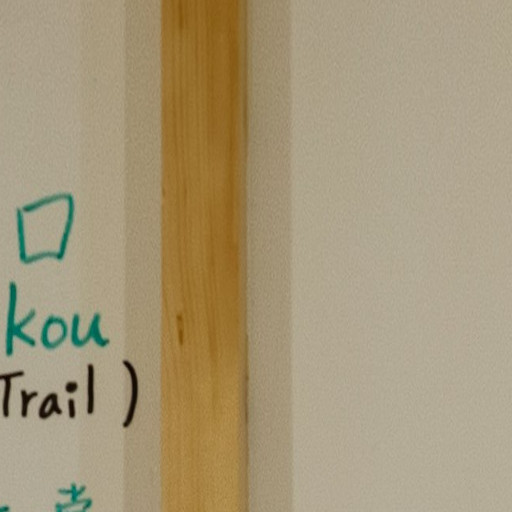 口
kou
Trail )